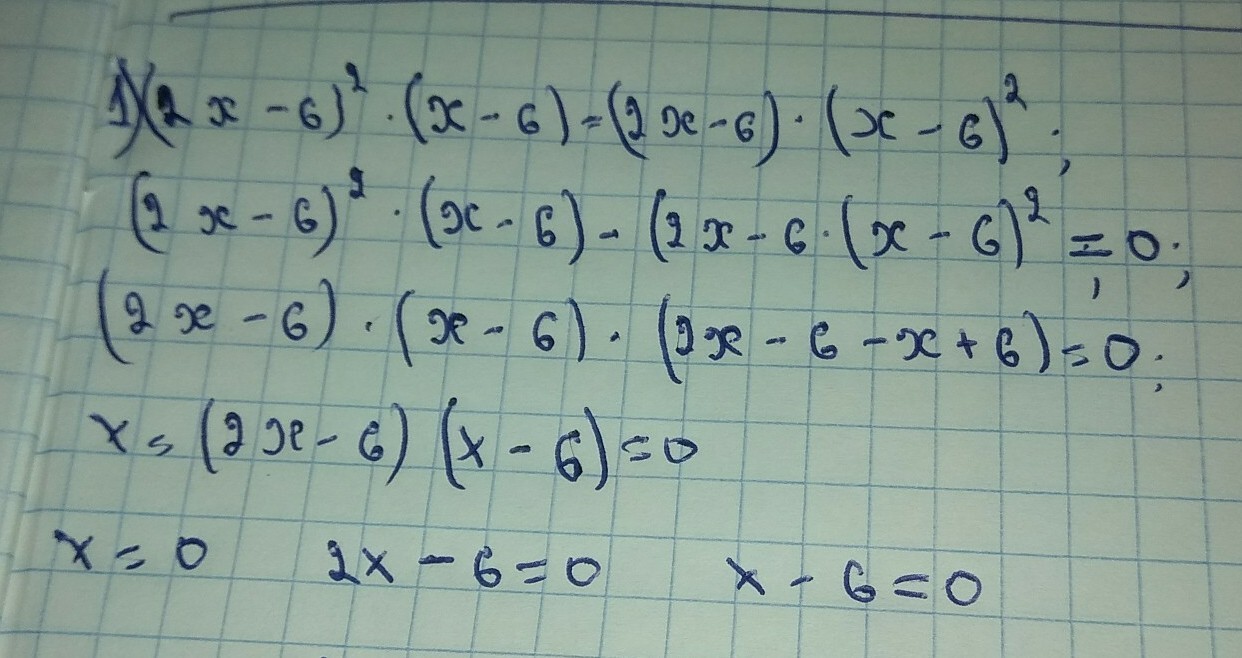 1)(2x-6)²·(x-6)=(2x-6)·(x-6)²;
(2x-6)²·(x-6)-(2x-6·(x-6)²=0;
(2x-6)·(x-6)·(2x-6-x+6)=0;
x=(2x-6)(x-6)=0
x=0 2x-6=0 x-6=0